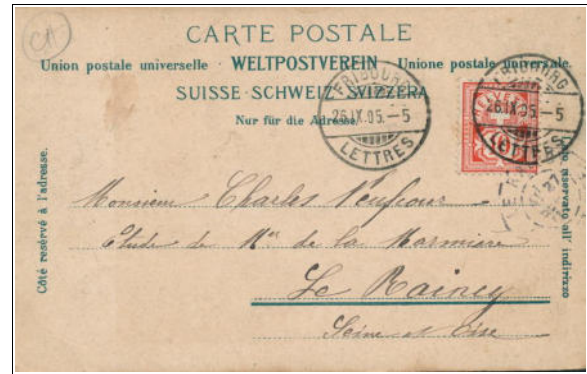 CH
CARTE POSTALE
Union postale universelle · WELTPOSTVEREIN · Unione postale universale.
SUISSE · SCHWEIZ · SVIZZERA
Nur für die Adresse
FRIBOURG
26.IX.05.—5
LETTRES
FRIBOURG
26.IX.05.—5
LETTRES
10
Côté réservé à l'adresse.
Lato riservato all' indirizzo
Monsieur Charles
Etude de Me de la Marniere
Le Raincy
Seine et Oise